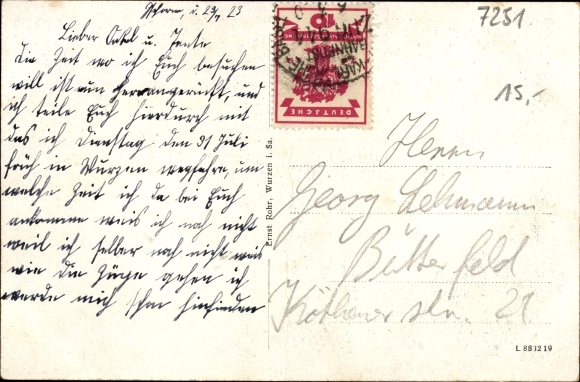 u. 29/7 23
Lieber Onkel u. Tante
Die Zeit wo ich Euch besuchen
will ist nun herangerückt, und
ich teile Euch hierdurch mit
das ich Dienstag den 31 Juli
früh in Wurzen wegfahre, um
welche Zeit ich da bei Euch
ankomme weis ich noch nicht
weil ich selber noch nicht weis
wie die Züge gehen ich
werde mich schon hinfinden
Ernst Rohr, Wurzen i. Sa.
10
DEUTSCHE
7251.
15,-
Herrn
Georg Lehmann
Bitterfeld
Köthener str. 21
L 883219